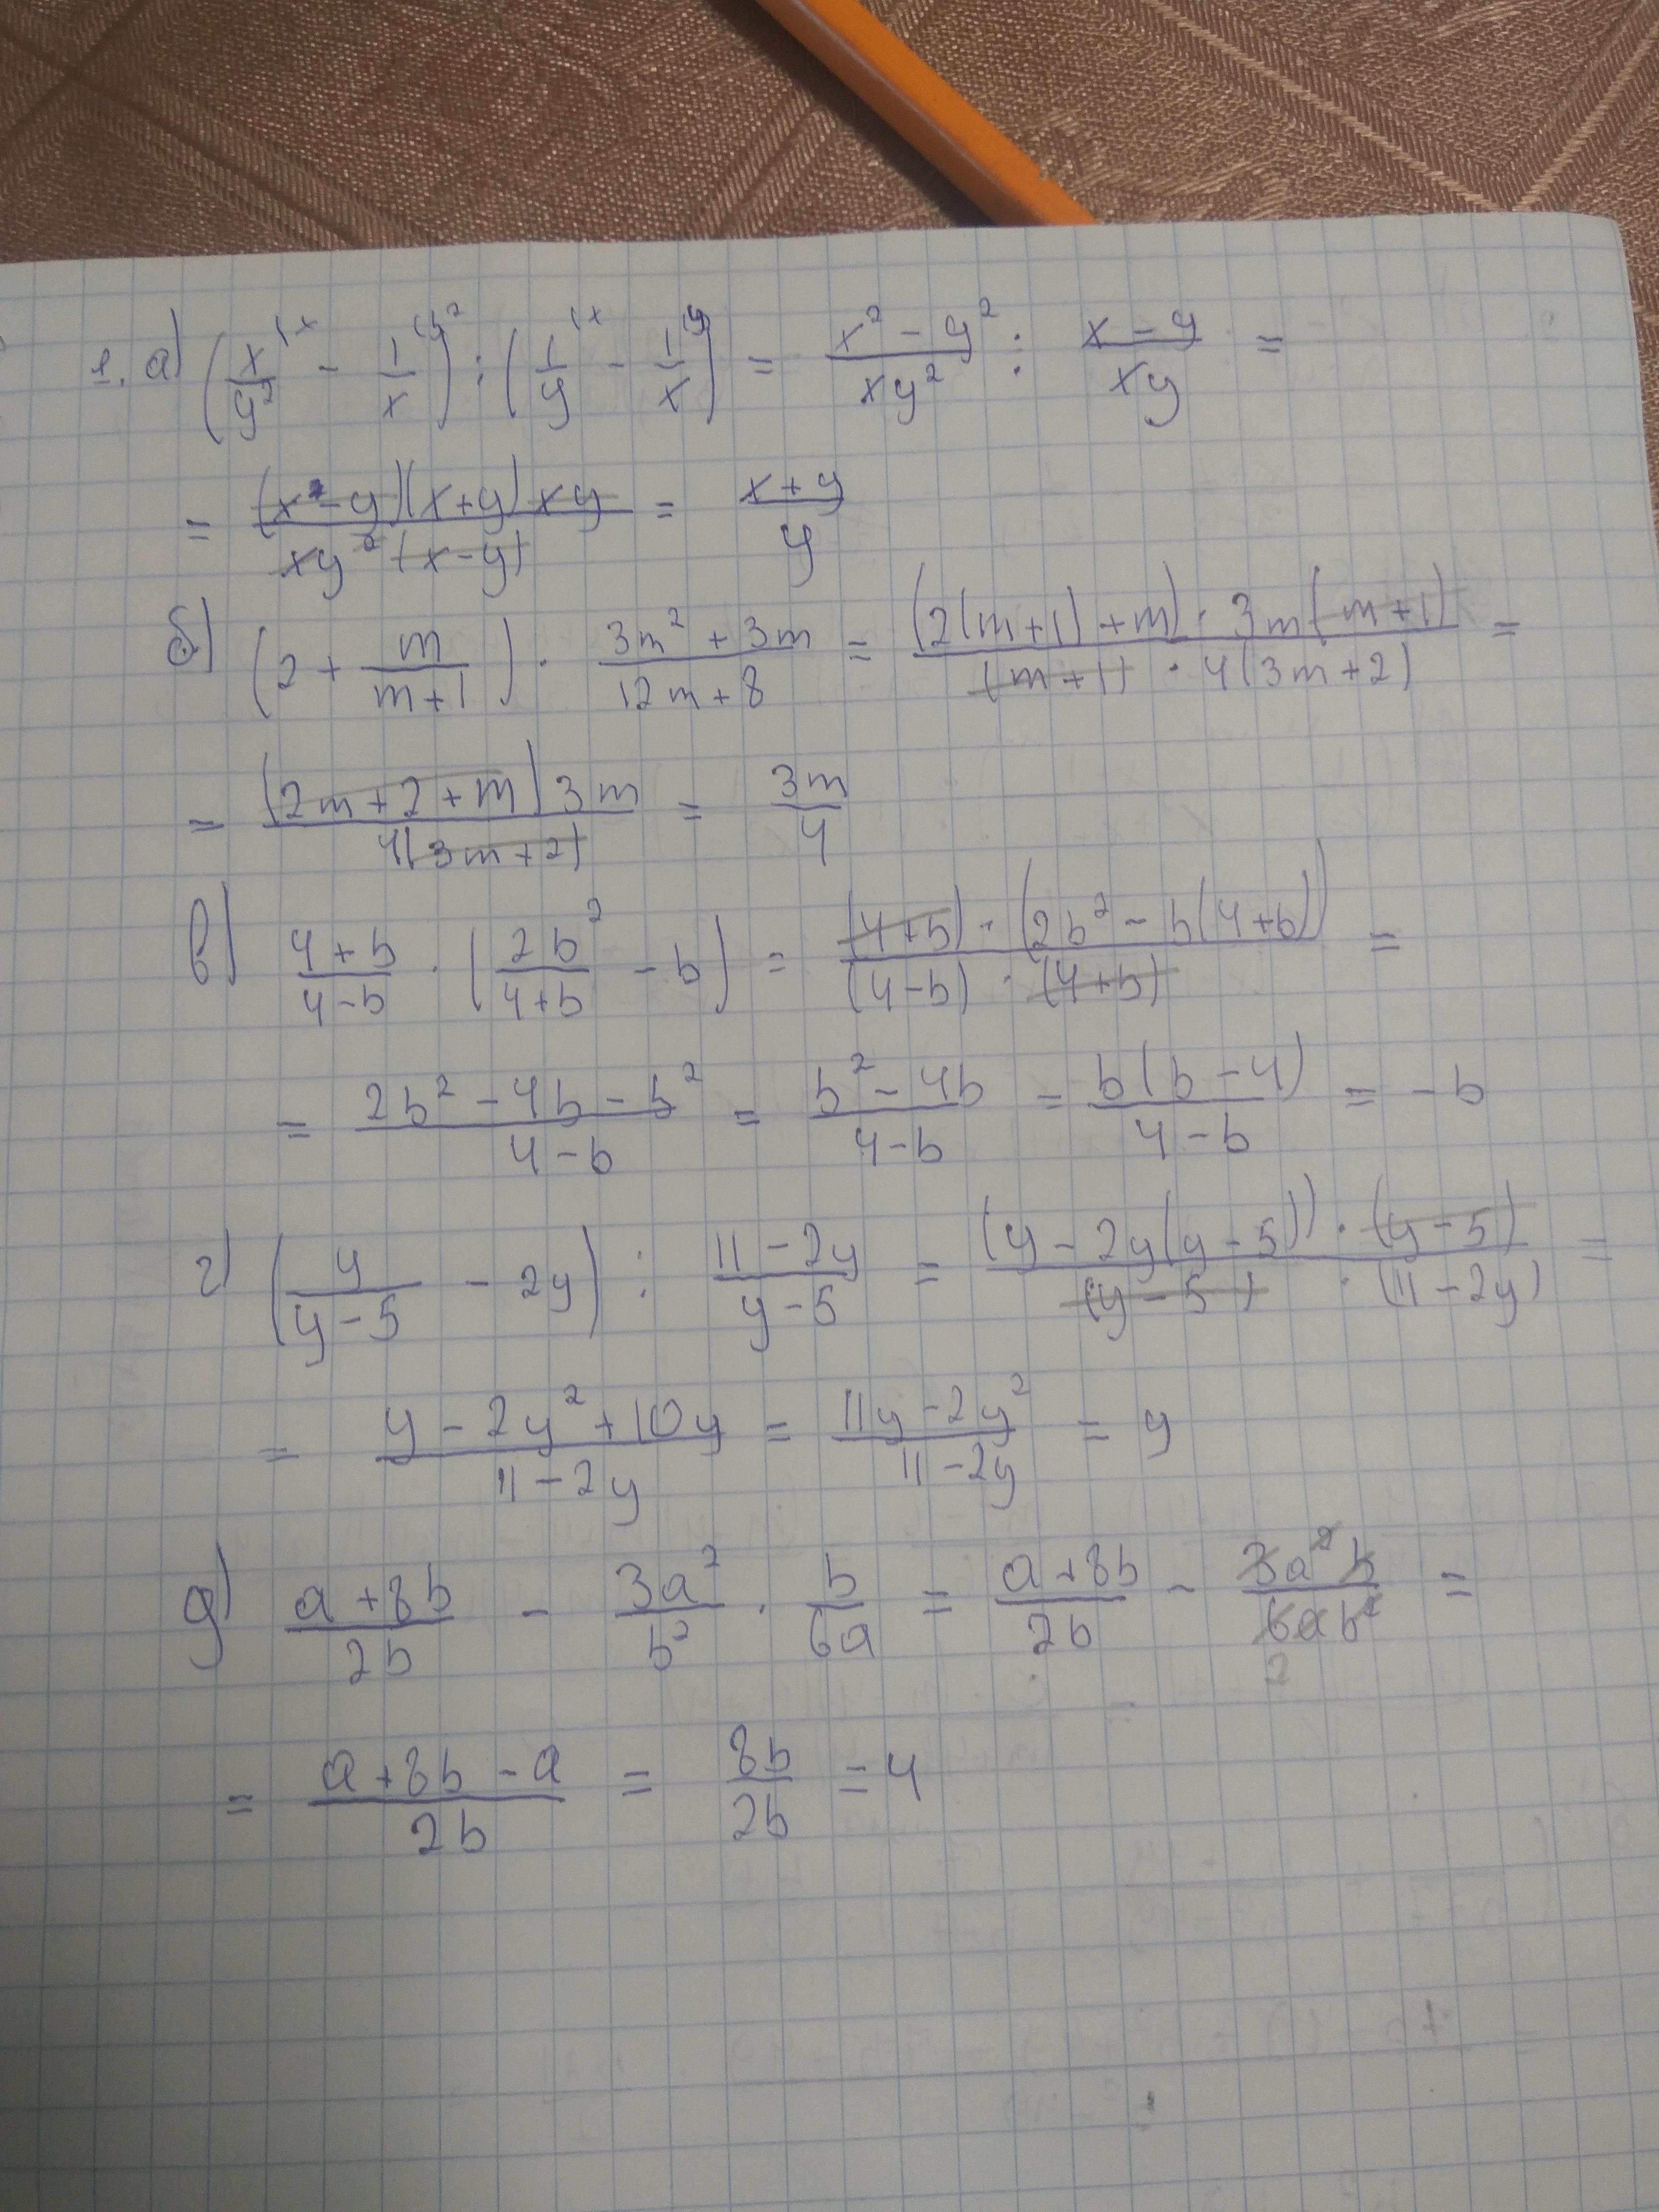 1. а) (x/y² - 1/x) : (1/y - 1/x) = (x² - y²)/(xy²) : (x - y)/(xy) =
= ((x - y)(x + y)xy)/(xy²(x - y)) = (x + y)/y
б) (2 + m/(m + 1)) · (3m² + 3m)/(12m + 8) = ((2(m + 1) + m) · 3m(m + 1))/((m + 1) · 4(3m + 2)) =
= ((2m + 2 + m)3m)/(4(3m + 2)) = 3m/4
в) (4 + b)/(4 - b) · (2b²/(4 + b) - b) = ((4 + b) · (2b² - b(4 + b)))/((4 - b) · (4 + b)) =
= (2b² - 4b - b²)/(4 - b) = (b² - 4b)/(4 - b) = b(b - 4)/(4 - b) = - b
г) (y/(y - 5) - 2y) : (11 - 2y)/(y - 5) = ((y - 2y(y - 5)) · (y - 5))/((y - 5) · (11 - 2y)) =
= (y - 2y² + 10y)/(11 - 2y) = (11y - 2y²)/(11 - 2y) = y
д) (a + 8b)/(2b) - 3a²/b² · b/(6a) = (a + 8b)/(2b) - (3a²b)/(6ab²) =
= (a + 8b - a)/(2b) = 8b/2b = 4